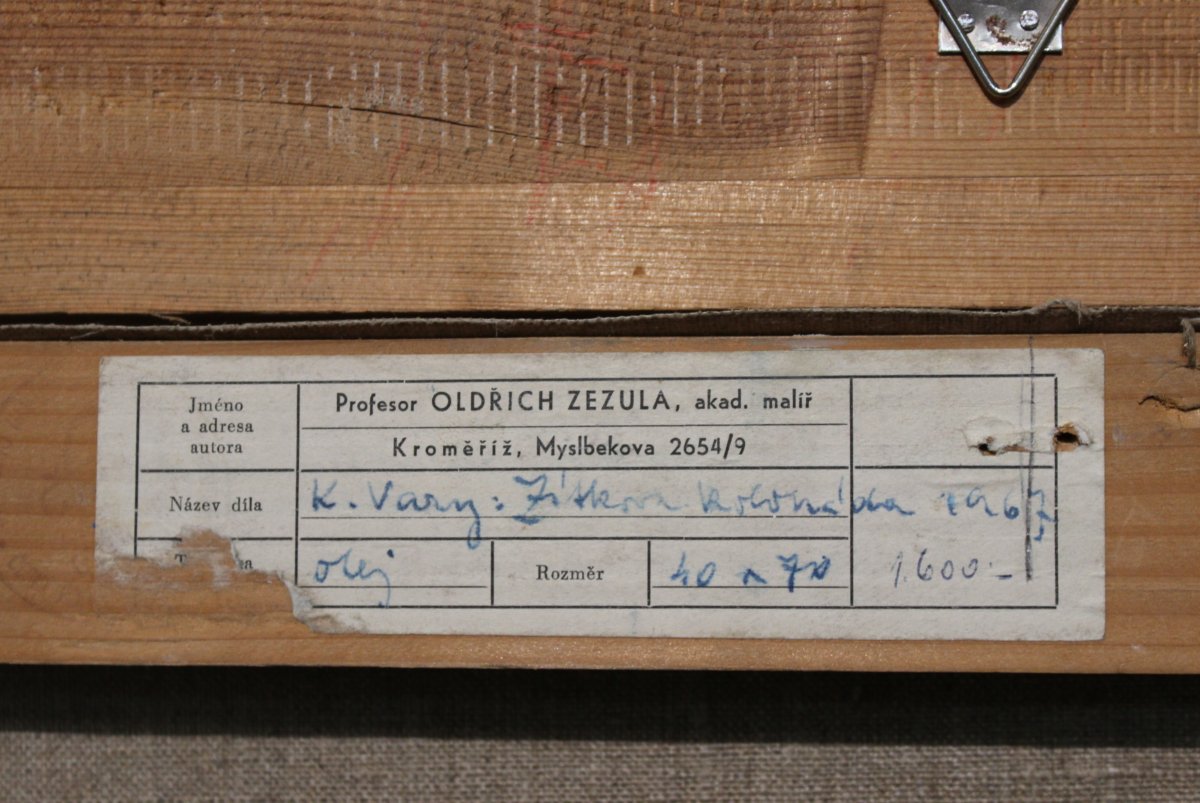 Jméno
a adresa
autora
Profesor OLDŘICH ZEZULA, akad. malíř
Kroměříž, Myslbekova 2654/9
Název díla
K. Vary: Zítkova kolonáda 1967
olej
Rozměr
40 x 70
1.600.-